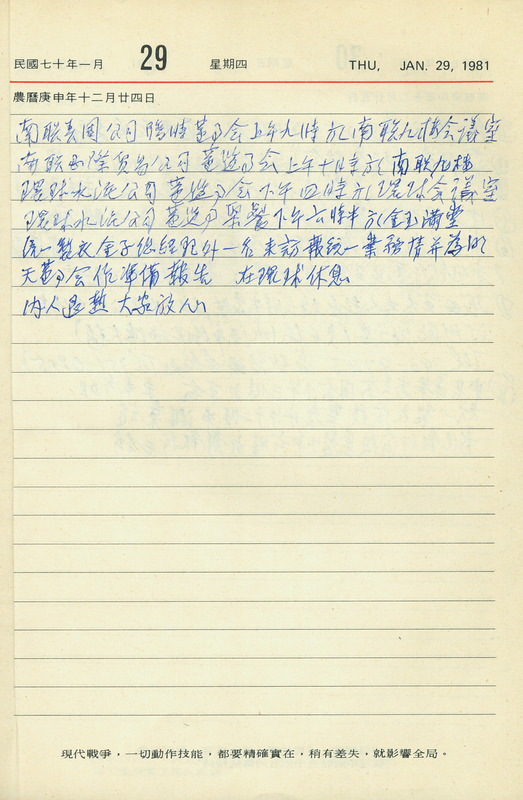 民國七十年一月 29 星期四 THU, JAN. 29, 1981
農曆庚申年十二月廿四日
南联公司臨時董事会上午九時於南联九楼会議室
南联国際貿易公司董監事会上午十時於南联九楼
環球水泥公司董監事会下午四時於環球会議室
環球水泥公司董監事聚餐下午六時半於金玉滿堂
統一製衣金子總經理外一名来訪報統一業務情并為明
天董事会作準備報告 在環球休息
内人退熱 大家放心
現代戰爭，一切動作技能，都要精確實在，稍有差失，就影響全局。